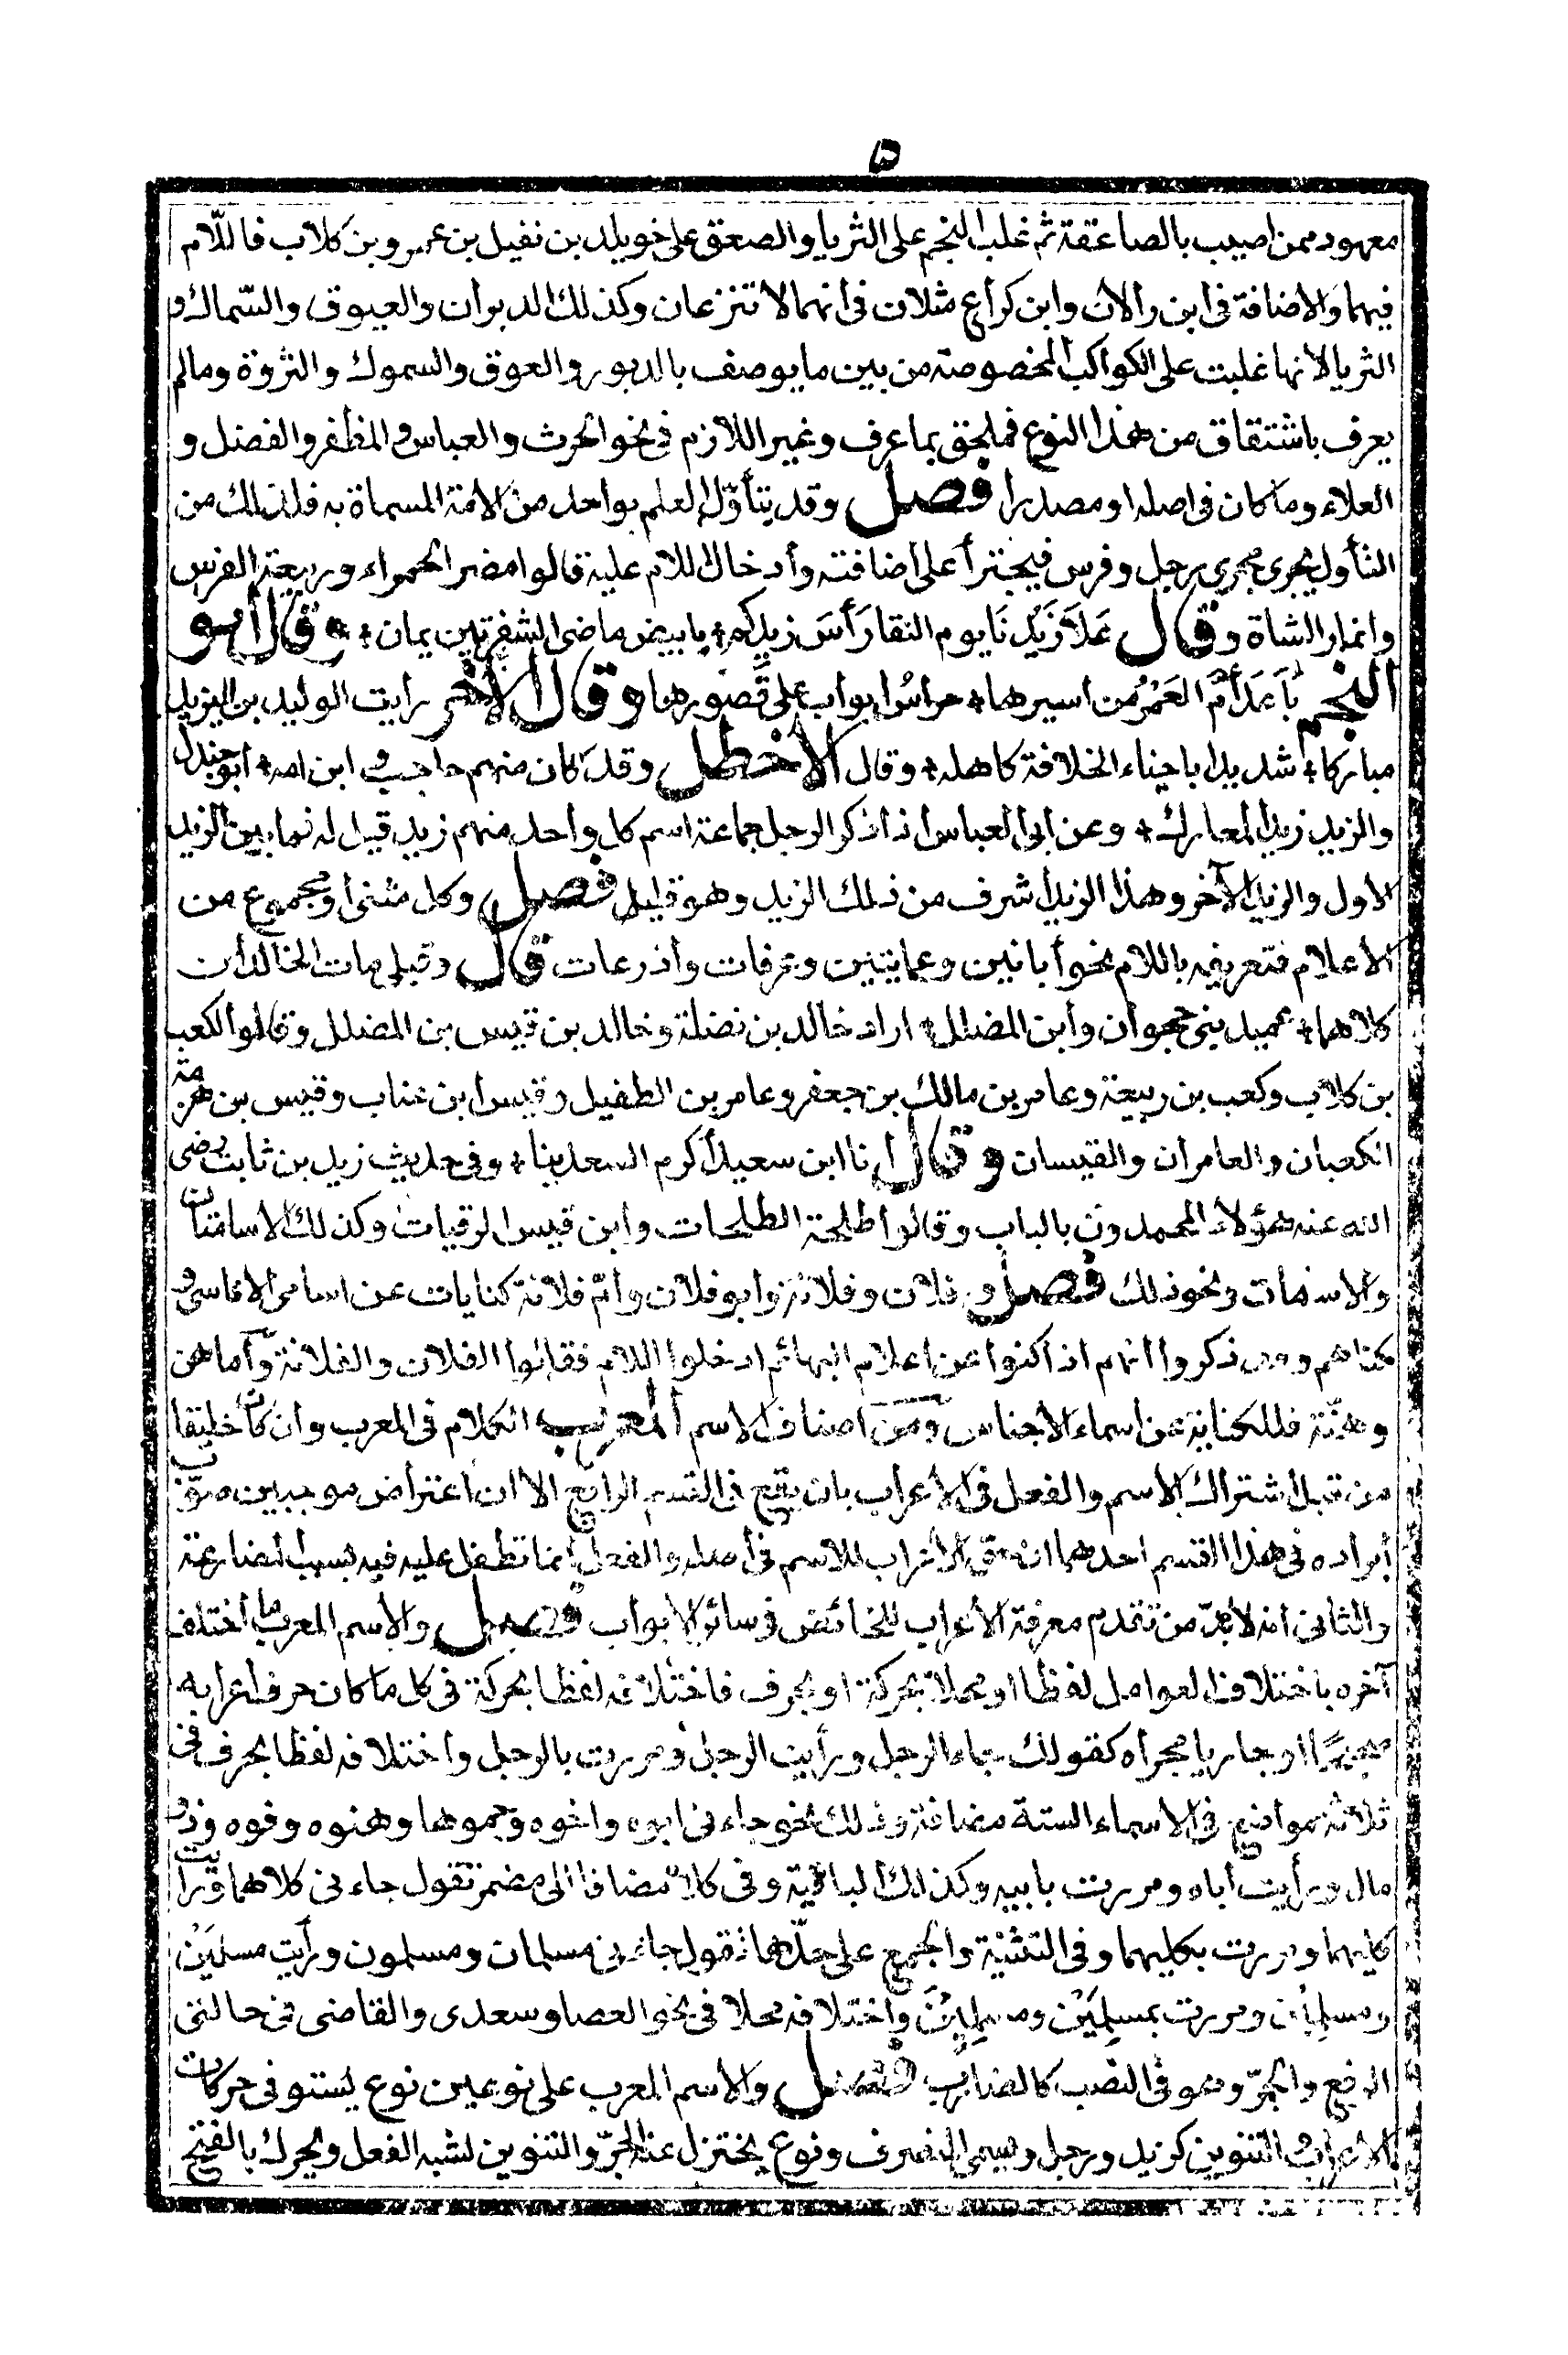 ٥
معهود ممن اصيب بالصاعقة ثم غلب النجم على الثريا والصعق على خويلد بن نفيل بن عمرو بن كلاب فاللّام
فيهما والاضافة فى ابن رألان وابن كراع مثلان فى أنهما لا تنزعان وكذلك الدبران والعيوق والسّماك و
الثريا لانها غلبت على الكواكب المخصوصة من بين ما يوصف بالدبور والعوق والسموك والثروة ومالم
يعرف باشتقاق من هذا النوع فملحق بما عرف وغير اللازم فى نحو الحرث والعباس والمظفر والفضل و
العلاء وما كان فى اصله او مصدرا فصل وقد يتأوّل العلم بواحد من الامة المسماة به فلذلك من
التأول يجرى مجرى رجل وفرس فيجترأ على اضافته وأدخال اللام عليه قالوا مضر الحمراء وربيعة الفرس
وانمار الشاة وقال عَلاَ زَيْدُ نَا يوم النقا رَأسَ زيدكم ٭ بابيض ماضى الشفرتين يمان ٭ وقال أبو
النجم بَاعَدَ أمَّ العَمْرِ من اسيرها ٭ حراسُ ابواب على قصورها وقال الآخر رأيت الوليد بن اليزيد
مباركا ٭ شديدا باحناء الخلافة كاهله ٭ وقال الأخطل وقد كان منهم حاجب و ابن امه ٭ أبو جندل
والزيد زيد المعارك ٭ وعن ابى العباس اذا ذكر الرجل جماعة اسم كل واحد منهم زيد قيل له فما بين الزيد
الاول والزيد الآخر وهذا الزيد أشرف من ذلك الزيد وهو قليل فصل وكل مثنى أو مجموع من
الأعلام فتعريفه باللام نحو أبانين وعمايتين وعرفات وأذرعات قال وقبلى مات الخالدان
كلاهما ٭ عميد بنى جحوان وأبن المضلل ٭ اراد خالد بن نضلة وخالد بن قيس بن المضلل وقالوا لكعب
بن كلاب وكعب بن ربيعة وعامر بن مالك بن جعفر وعامر بن الطفيل وقيس ابن عناب وقيس بن هزمة
الكعبان والعامران والقيسان وقال أنا ابن سعيد أكرم السعدينا ٭ وفى حديث زيد بن ثابت رضى
الله عنه هؤلاء المحمدون بالباب وقالوا طلحة الطلحات وابن قيس الرقيات وكذلك الاسامتان
والاسامات ونحو ذلك فصل و فلان وفلانة وابو فلان وأمّ فلانة كنايات عن اسامى الاناسى و
كناهم وقد ذكروا أنهم اذا كنوا عن اعلام البهائم ادخلوا اللام فقالوا الفلان والفلانة وأما هن
وهنّة فللكناية عن اسماء الأجناس ومن اصناف الاسم المعرب الكلام فى المعرب وان كان خليقا
من قبل اشتراك الاسم والفعل فى الأعراب بان يقع فى القسم الرابع الا ان اعتراض موجبين صوّب
أيراده فى هذا القسم احدهما ان حق الأعراب للاسم فى أصله والفعل إنما تطفل عليه فيه بسبب المضارعة
والثانى انه لابدّ من تقدم معرفة الأعراب للخائض فى سائر الابواب فصل والاسم المعرب ما اختلف
آخره باختلاف العوامل لفظا او محلا بحركة او بحرف فاختلافه لفظا بحركة فى كل ما كان حرف اعرابه
صحيحًا او جاريا مجراه كقولك جاء الرجل ورأيت الرجل ومررت بالرجل وأختلافه لفظا بحرف فى
ثلاثة مواضع فى الاسماء الستة مضافة وذلك نحو جاءنى ابوه واخوه وحموها وهنوه وفوه وذو
مال ورأيت أباه ومررت بابيه وكذلك الباقية وفى كلا مضافا الى مضمر تقول جاءنى كلاهما ورأيت
كليهما ومررت بكليهما وفى التثنية والجمع على حدّها تقول جاءنى مسلمان ومسلمون ورأيت مسلمَيْن
ومسلمِين ومررت بمسلِمَيْن ومسلمِيْنَ وأختلافه محلا فى نحو العصا وسعدى والقاضى فى حالتى
الرفع والجرّ وهو فى النصب كالضارب فصل والاسم المعرب على نوعين نوع يستوفى حركات
الاعراب والتنوين كزيد ورجل ويسمى المنصرف ونوع يختزل عنه الجرّ والتنوين لشبه الفعل ويحرك بالفتح